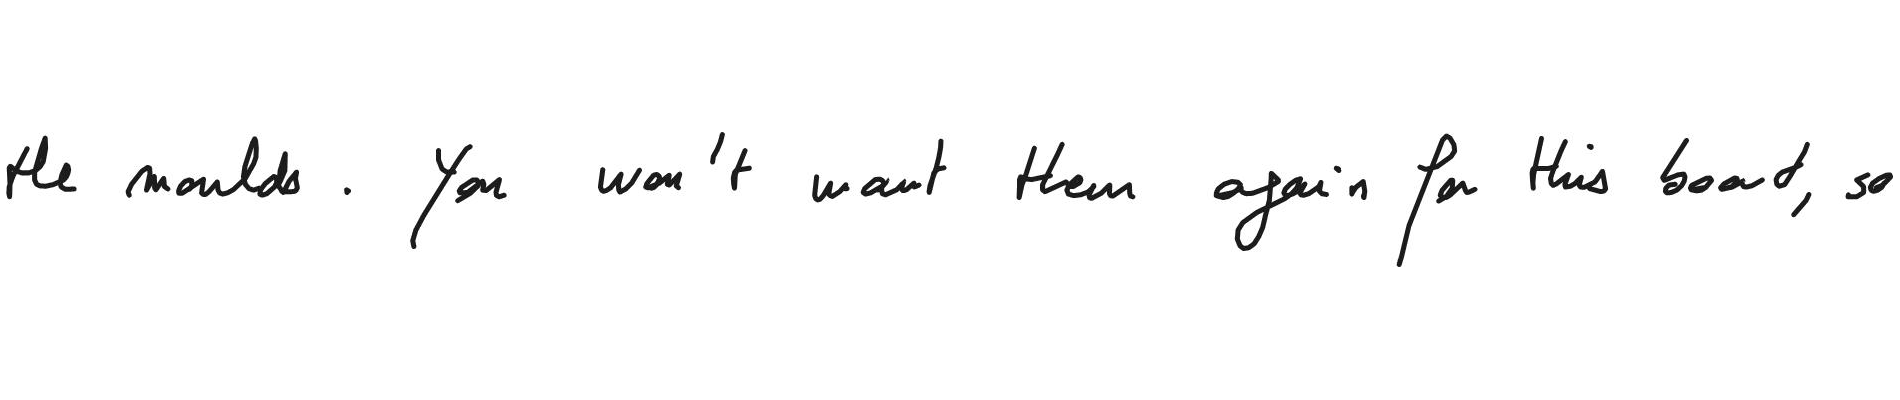 the moulds. You won't want them again for this boat, so